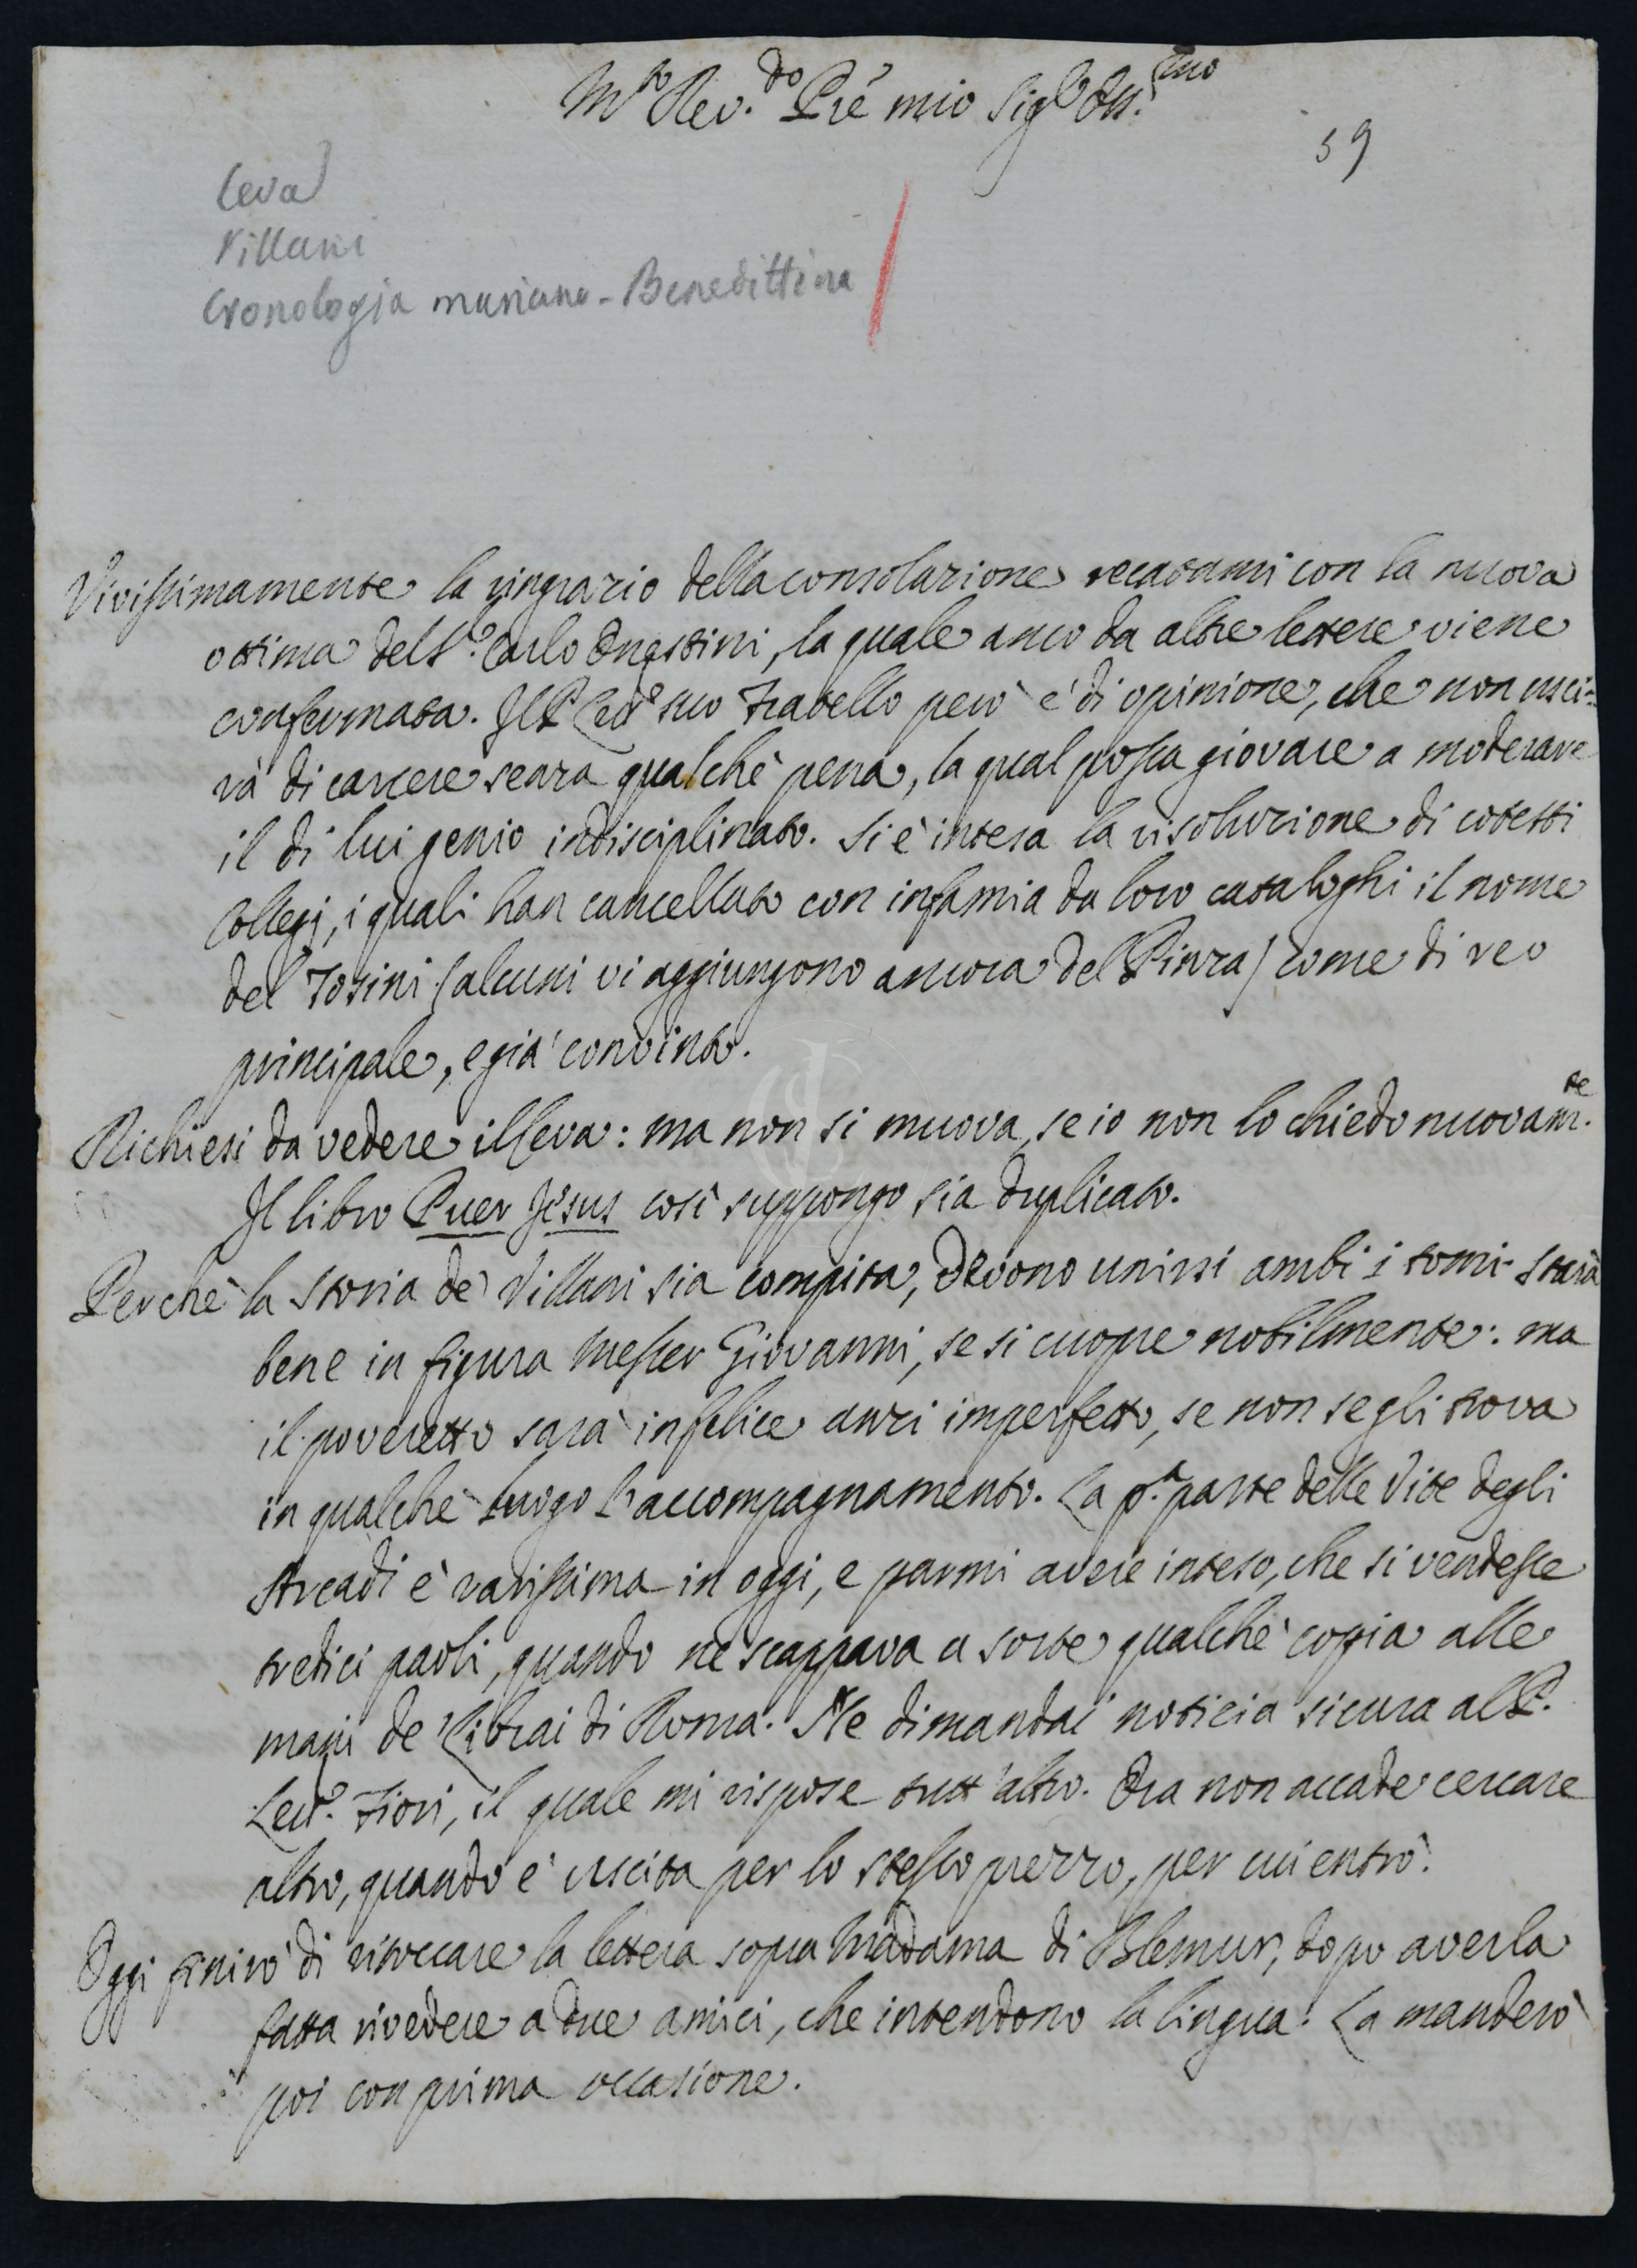 M.to Rev.do Prê mio Sig.r Oss.mo
59
Ceva
Villani
Cronologia mariano-Benedittina
Vivissimamente la ringrazio della consolazione recatami con la nuova
ottima del S.r Carlo Onestini, la quale anco da altre lettere viene
confermata. Il P. Let.e suo fratello però è di opinione, che non usci=
rà di carcere senza qualche pena, la qual possa giovare a moderare
il di lui genio indisciplinato. Si è intesa la risoluzione di cotesti
Collegj, i quali han cancellato con infamia da loro cataloghi il nome
del Tosini (alcuni vi aggiungono ancora del Pinza) come di reo
principale, e già convinto.
Richiesi da vedere il Ceva: ma non si muova, se io non lo chiedo nuovam.te
Il libro Puer Jesus così suppongo sia duplicato.
Perchè la storia de' Villani sia compita, devono unirsi ambi i tomi. Starà
bene in figura Messer Giovanni, se si cuopre nobilmente: ma
il poveretto sarà infelice anzi imperfetto, se non se gli trova
in qualche luogo l'accompagnamento. La p.a parte delle Vite degli
Arcadi è rarissima in oggi, e parmi avere inteso, che si vendesse
tredici paoli, quando ne scappava a sorte qualche copia alle
mani de' Librai di Roma. Ne dimandai noticia sicura al P.
Lett.e Fiori, il quale mi rispose tutt'altro. Ora non accade cercare
altro, quando è uscita per lo stesso prezzo, per cui entrò.
Oggi finirò di ritoccare la lettera sopra Madama di Blemur, dopo averla
fatta rivedere a due amici, che intendono la lingua. La manderò
poi con prima occasione.